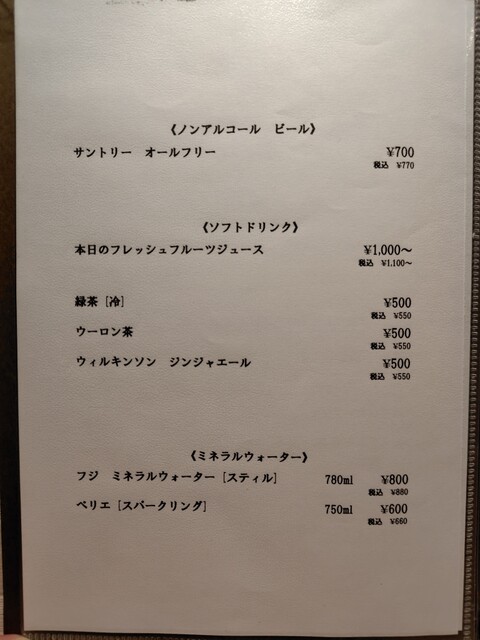 《ノンアルコール　ビール》
サントリー　オールフリー ¥700
税込 ¥770
《ソフトドリンク》
本日のフレッシュフルーツジュース ¥1,000～
税込 ¥1,100～
緑茶 [冷] ¥500
税込 ¥550
ウーロン茶 ¥500
税込 ¥550
ウィルキンソン　ジンジャエール ¥500
税込 ¥550
《ミネラルウォーター》
フジ　ミネラルウォーター [スティル] 780ml ¥800
税込 ¥880
ペリエ [スパークリング] 750ml ¥600
税込 ¥660